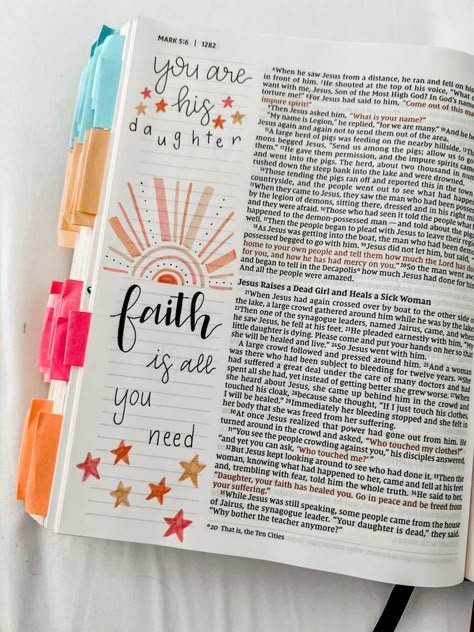 MARK 5:6 | 1282
you are
his
daughter
faith
is all
you
need
6When he saw Jesus from a distance, he ran and fell on his
in front of him. 7He shouted at the top of his voice, "What
want with me, Jesus, Son of the Most High God? In God's name
torture me!" 8For Jesus had said to him, "Come out of this ma
impure spirit!"
9Then Jesus asked him, "What is your name?"
"My name is Legion," he replied, "for we are many." 10And he
Jesus again and again not to send them out of the area.
11A large herd of pigs was feeding on the nearby hillside. 12Th
mons begged Jesus, "Send us among the pigs; allow us to g
them." 13He gave them permission, and the impure spirits cam
and went into the pigs. The herd, about two thousand in
rushed down the steep bank into the lake and were drowned
14Those tending the pigs ran off and reported this in the town
countryside, and the people went out to see what had happe
15When they came to Jesus, they saw the man who had been poss
by the legion of demons, sitting there, dressed and in his right
and they were afraid. 16Those who had seen it told the people what
happened to the demon-possessed man — and told about the pigs
well. 17Then the people began to plead with Jesus to leave their reg
18As Jesus was getting into the boat, the man who had been de
possessed begged to go with him. 19Jesus did not let him, but said,
home to your own people and tell them how much the Lord has d
for you, and how he has had mercy on you." 20So the man went aw
and began to tell in the Decapolis a how much Jesus had done for him
And all the people were amazed.
Jesus Raises a Dead Girl and Heals a Sick Woman
21When Jesus had again crossed over by boat to the other side o
the lake, a large crowd gathered around him while he was by the la
22Then one of the synagogue leaders, named Jairus, came, and when
he saw Jesus, he fell at his feet. 23He pleaded earnestly with him, "My
little daughter is dying. Please come and put your hands on her so th
she will be healed and live." 24So Jesus went with him.
A large crowd followed and pressed around him. 25And a woman
was there who had been subject to bleeding for twelve years. 26She
had suffered a great deal under the care of many doctors and had
spent all she had, yet instead of getting better she grew worse. 27When
she heard about Jesus, she came up behind him in the crowd and
touched his cloak, 28because she thought, "If I just touch his clothes,
I will be healed." 29Immediately her bleeding stopped and she felt in
her body that she was freed from her suffering.
30At once Jesus realized that power had gone out from him. He
turned around in the crowd and asked, "Who touched my clothes?"
31"You see the people crowding against you," his disciples answered,
"and yet you can ask, 'Who touched me?'"
32But Jesus kept looking around to see who had done it. 33Then the
woman, knowing what had happened to her, came and fell at his feet
and, trembling with fear, told him the whole truth. 34He said to her,
"Daughter, your faith has healed you. Go in peace and be freed from
your suffering."
35While Jesus was still speaking, some people came from the house
of Jairus, the synagogue leader. "Your daughter is dead," they said.
"Why bother the teacher anymore?"
a 20 That is, the Ten Cities